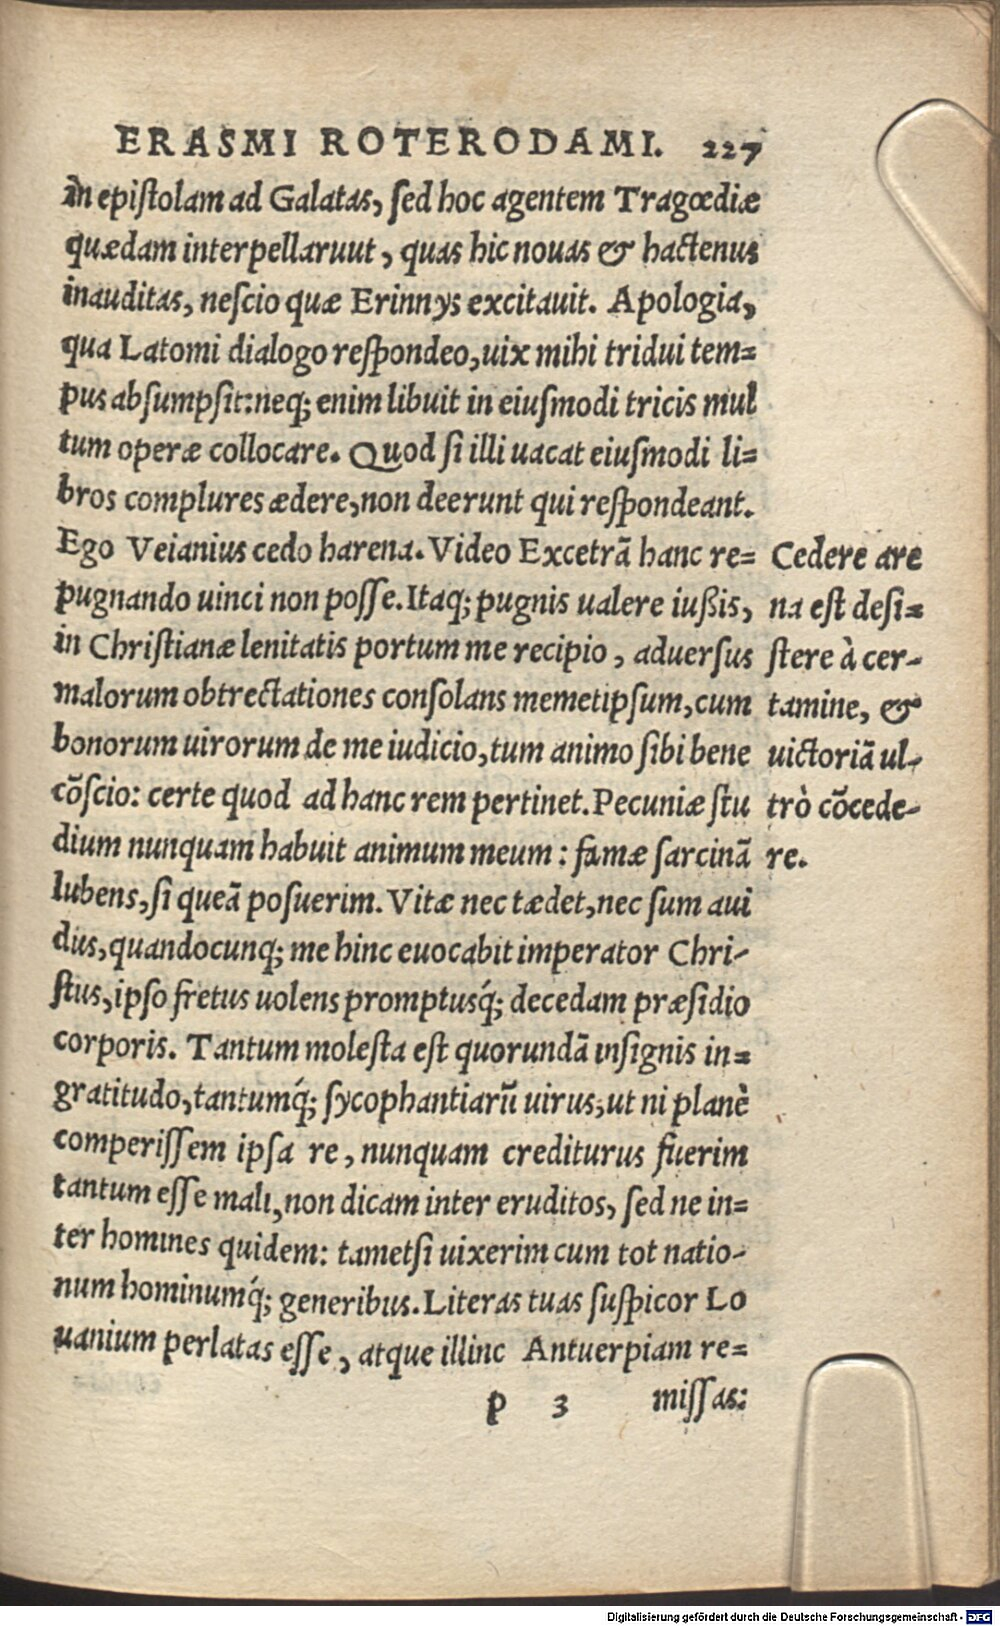 ERASMI ROTERODAMI. 227
in epistolam ad Galatas, sed hoc agentem Tragœdiæ
quædam interpellaruut, quas hic nouas & hactenus
inauditas, nescio quæ Erinnys excitauit. Apologia,
qua Latomi dialogo respondeo, uix mihi tridui tem=
pus absumpsit: neq; enim libuit in eiusmodi tricis mul
tum operæ collocare. Quod si illi uacat eiusmodi li=
bros complures ædere, non deerunt qui respondeant.
Ego Veianius cedo harena. Video Excetrã hanc re=
pugnando uinci non posse. Itaq; pugnis ualere iußis,
in Christianæ lenitatis portum me recipio, aduersus
malorum obtrectationes consolans memetipsum, cum
bonorum uirorum de me iudicio, tum animo sibi bene
cõscio: certe quod ad hanc rem pertinet. Pecuniæ stu
dium nunquam habuit animum meum: famæ sarcinã
lubens, si queã posuerim. Vitæ nec tædet, nec sum aui
dus, quandocunq; me hinc euocabit imperator Chri-
stus, ipso fretus uolens promptusq́; decedam præsidio
corporis. Tantum molesta est quorundã insignis in=
gratitudo, tantumq́; sycophantiarũ uirus, ut ni planè
comperissem ipsa re, nunquam crediturus fuerim
tantum esse mali, non dicam inter eruditos, sed ne in=
ter homines quidem: tametsi uixerim cum tot natio-
num hominumq́; generibus. Literas tuas suspicor Lo
uanium perlatas esse, atque illinc Antuerpiam re=
p 3 missas:
Cedere are
na est desi=
stere à cer-
tamine, &
uictoriã ul-
trò cõcede-
re.
Digitalisierung gefördert durch die Deutsche Forschungsgemeinschaft - DFG